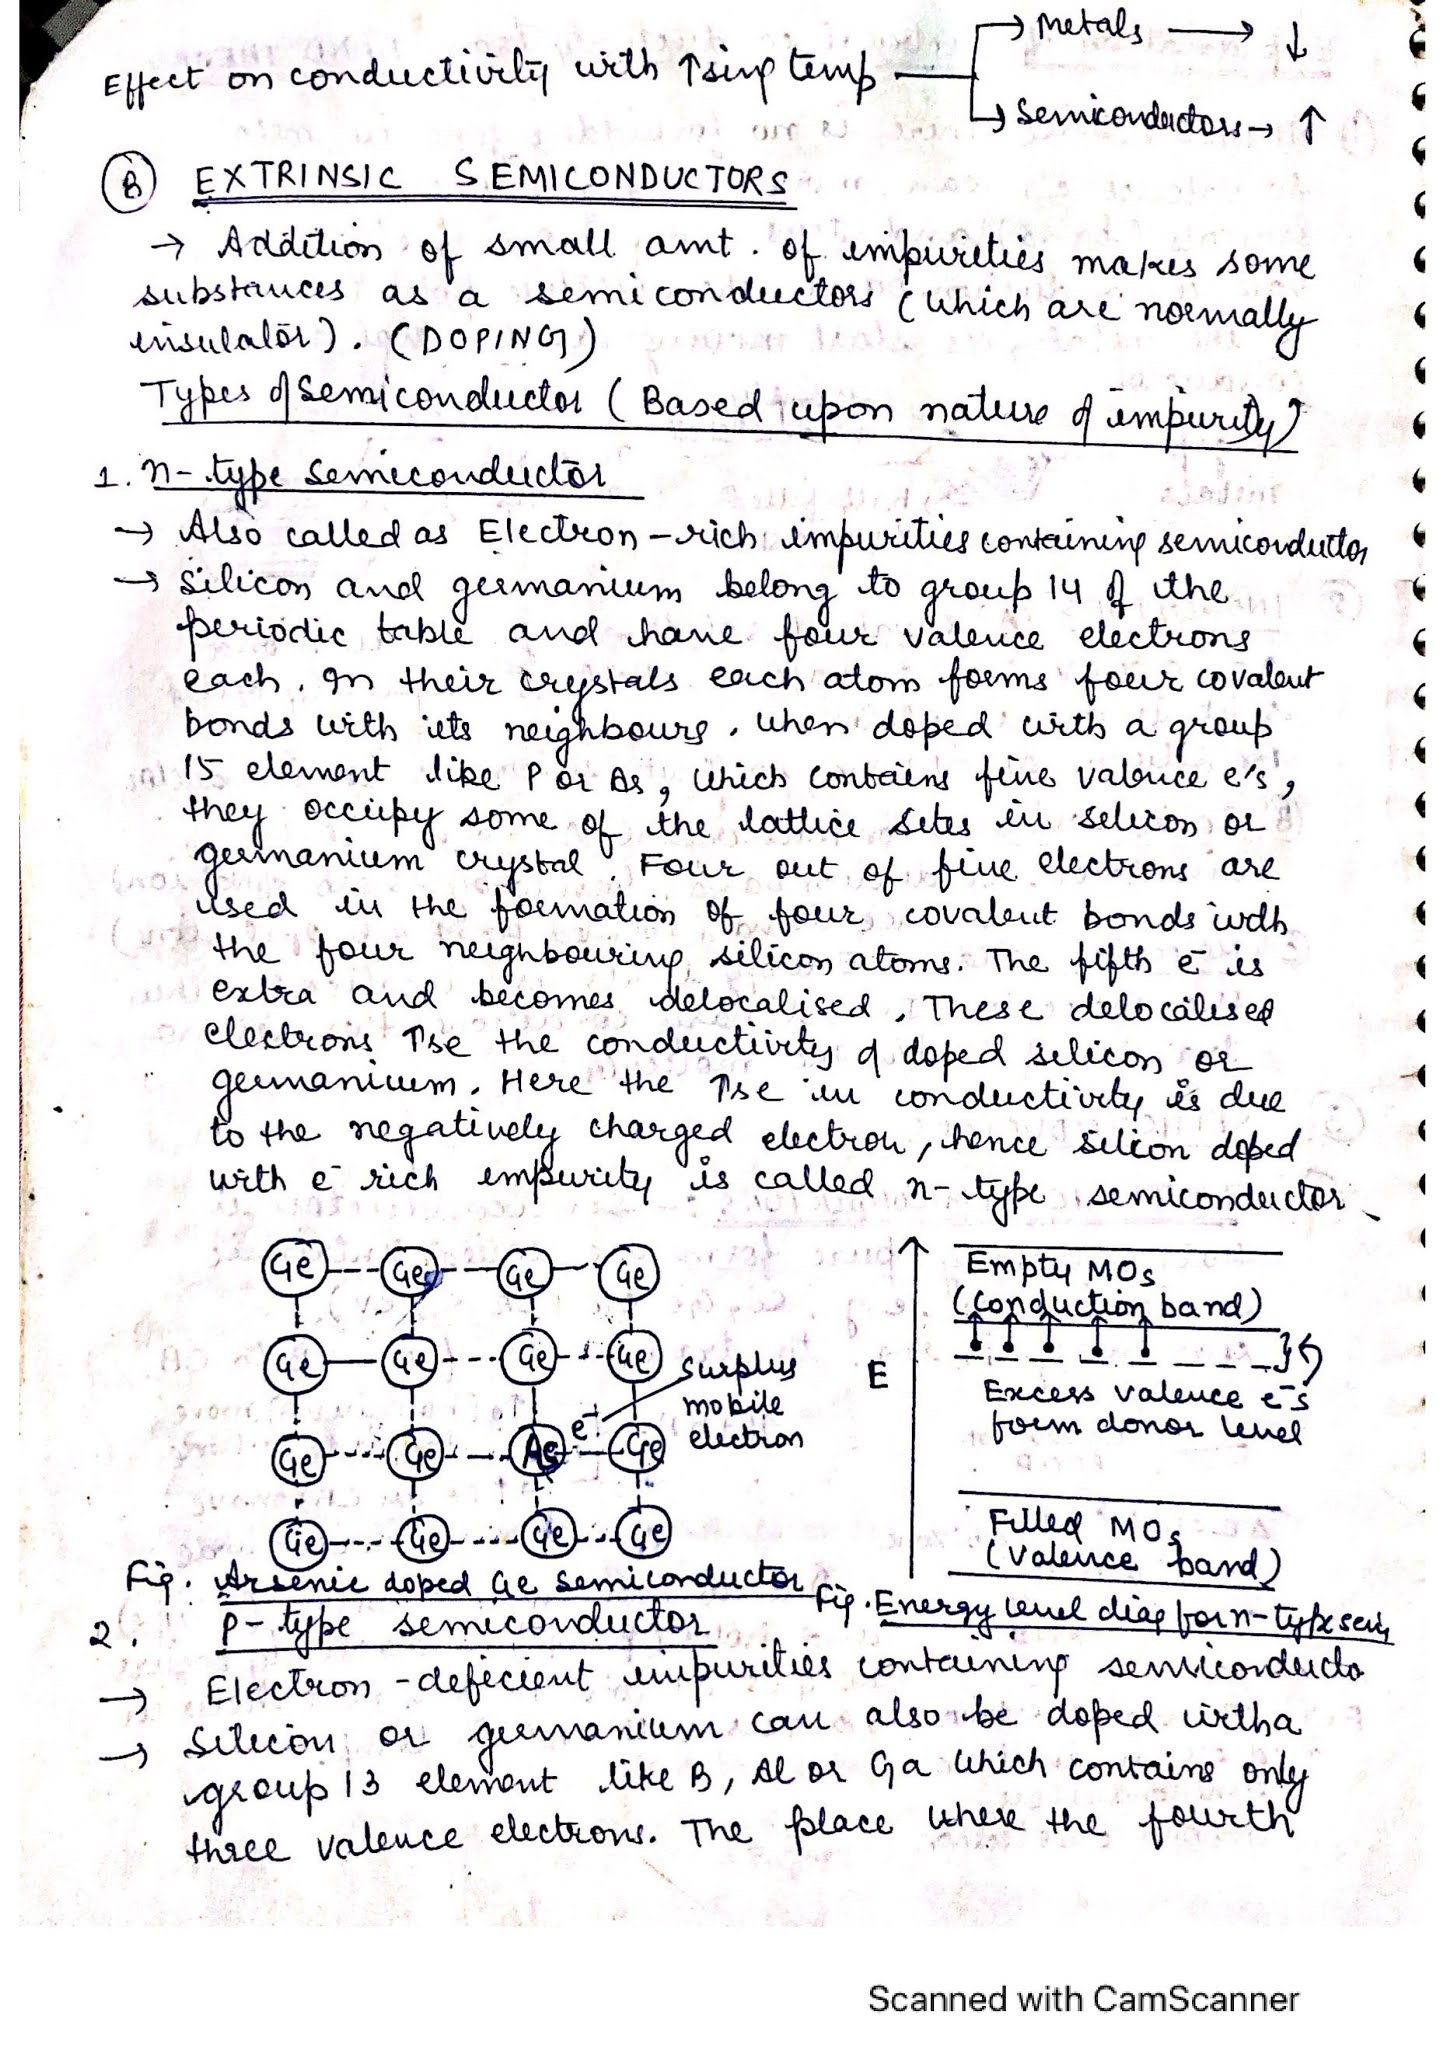 Effect on conductivity with ↑sing temp → Metals → ↓
→ Semiconductors → ↑
(B) EXTRINSIC SEMICONDUCTORS
→ Addition of small amt. of impurities makes some
substances as a semiconductors (which are normally
insulator). (DOPING)
Types of Semiconductor (Based upon nature of impurity)
1. n-type semiconductor
→ Also called as Electron-rich impurities containing semiconductor
→ Silicon and germanium belong to group 14 of the
periodic table and have four valence electrons
each. In their crystals each atom forms four covalent
bonds with its neighbours. When doped with a group
15 element like P or As, which contains five valence e's,
they occupy some of the lattice sites in silicon or
germanium crystal. Four out of five electrons are
used in the formation of four covalent bonds with
the four neighbouring silicon atoms. The fifth e⁻ is
extra and becomes delocalised. These delocalised
electrons ↑se the conductivity of doped silicon or
germanium. Here the ↑se in conductivity is due
to the negatively charged electron, hence silicon doped
with e⁻ rich impurity is called n-type semiconductor
Ge Ge Ge Ge
Ge Ge Ge Ge
surplus
mobile
electron
e⁻
Ge Ge As Ge
Ge Ge Ge Ge
Fig. Arsenic doped Ge semiconductor
E
Empty MOs
(conduction band)
Excess valence e⁻s
form donor level
Filled MOs
(valence band)
Fig. Energy level diag for n-type semi
2. p-type semiconductor
→ Electron-deficient impurities containing semiconducto
→ Silicon or germanium can also be doped with a
group 13 element like B, Al or Ga which contains only
three valence electrons. The place where the fourth
Scanned with CamScanner